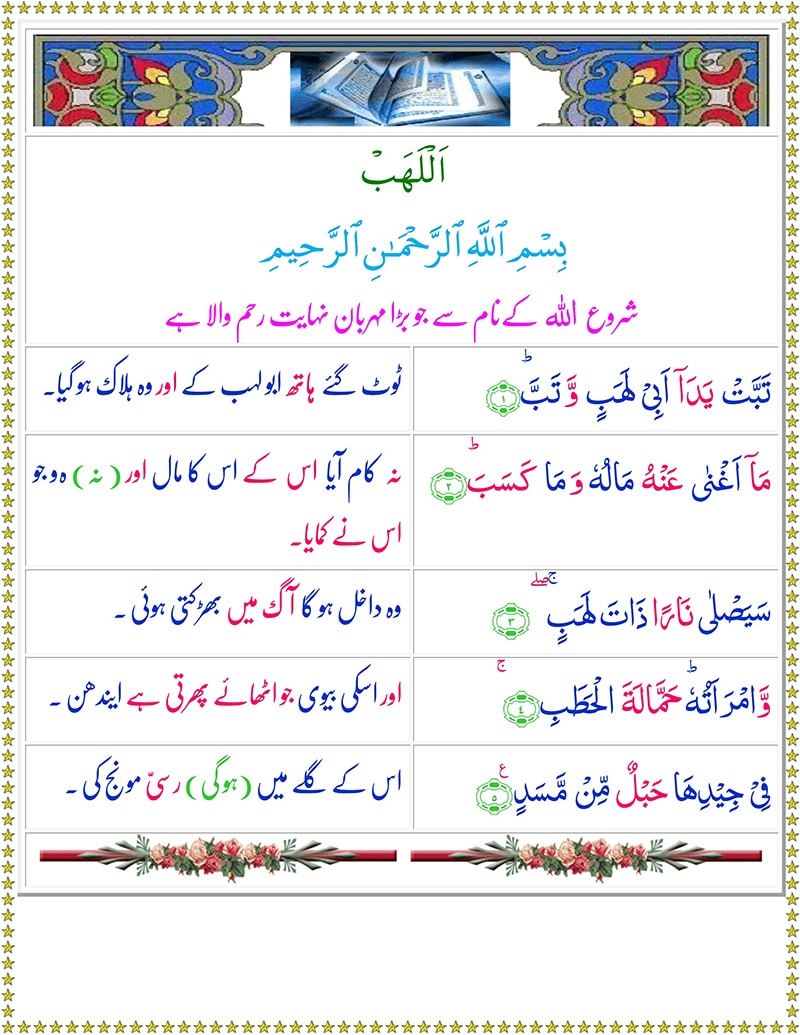 اَللَّهَبْ
بِسْمِ ٱللَّهِ ٱلرَّحْمَـٰنِ ٱلرَّحِيمِ
شروع اللہ کے نام سے جو بڑا مہربان نہایت رحم والا ہے
تَبَّتْ يَدَاۤ اَبِىْ لَهَبٍ وَّ تَبَّؕ‏ ﴿۱﴾
ٹوٹ گئے ہاتھ ابو لہب کے اور وہ ہلاک ہوگیا۔
مَاۤ اَغْنٰى عَنْهُ مَالُهٗ وَ مَا كَسَبَؕ‏ ﴿۲﴾
نہ کام آیا اس کے اس کا مال اور ( نہ ) وہ جو
اس نے کمایا۔
سَيَصْلٰى نَارًا ذَاتَ لَهَبٍ ۚۖ‏ ﴿۳﴾
وہ داخل ہو گا آگ میں بھڑکتی ہوئی ۔
وَّامْرَاَتُهٗؕ حَمَّالَةَ الْحَطَبِۚ‏ ﴿٤﴾
اور اسکی بیوی جو اٹھائے پھرتی ہے ایندھن ۔
فِىْ جِيْدِهَا حَبْلٌ مِّنْ مَّسَدٍ ع ﴿۵﴾
اس کے گلے میں ( ہوگی ) رسیّ مونج کی ۔